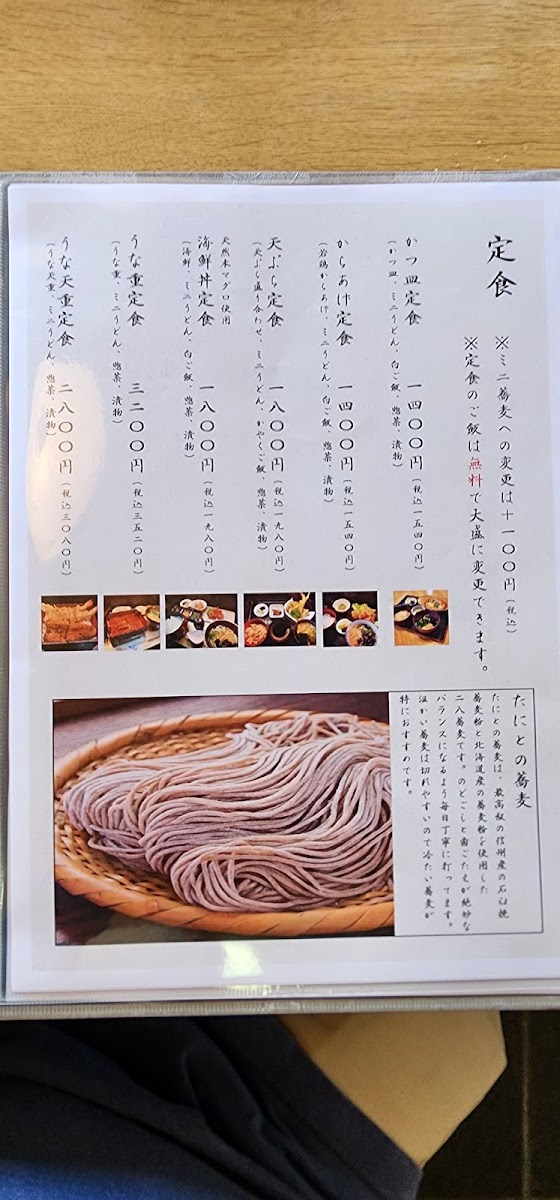 定食
※ミニ蕎麦への変更は＋一〇〇円(税込)
※定食のご飯は無料で大盛に変更できます。
かつ皿定食 一四〇〇円(税込一五四〇円)
(かつ皿、ミニうどん、白ご飯、惣菜、漬物)
からあげ定食 一四〇〇円(税込一五四〇円)
(若鶏からあげ、ミニうどん、白ご飯、惣菜、漬物)
天ぷら定食 一八〇〇円(税込一九八〇円)
(天ぷら盛り合わせ、ミニうどん、かやくご飯、惣菜、漬物)
天然本マグロ使用
海鮮丼定食 一八〇〇円(税込一九八〇円)
(海鮮、ミニうどん、白ご飯、惣菜、漬物)
うな重定食 三二〇〇円(税込三五二〇円)
(うな重、ミニうどん、惣菜、漬物)
うな天重定食 二八〇〇円(税込三〇八〇円)
(うな天重、ミニうどん、惣菜、漬物)
たにとの蕎麦
たにとの蕎麦は、最高級の信州産の石臼挽
蕎麦粉と北海道産の蕎麦粉を使用した
二八蕎麦です。のどごしと歯ごたえが絶妙な
バランスになるよう毎日丁寧に打ってます。
温かい蕎麦は切れやすいので冷たい蕎麦が
特におすすめです。